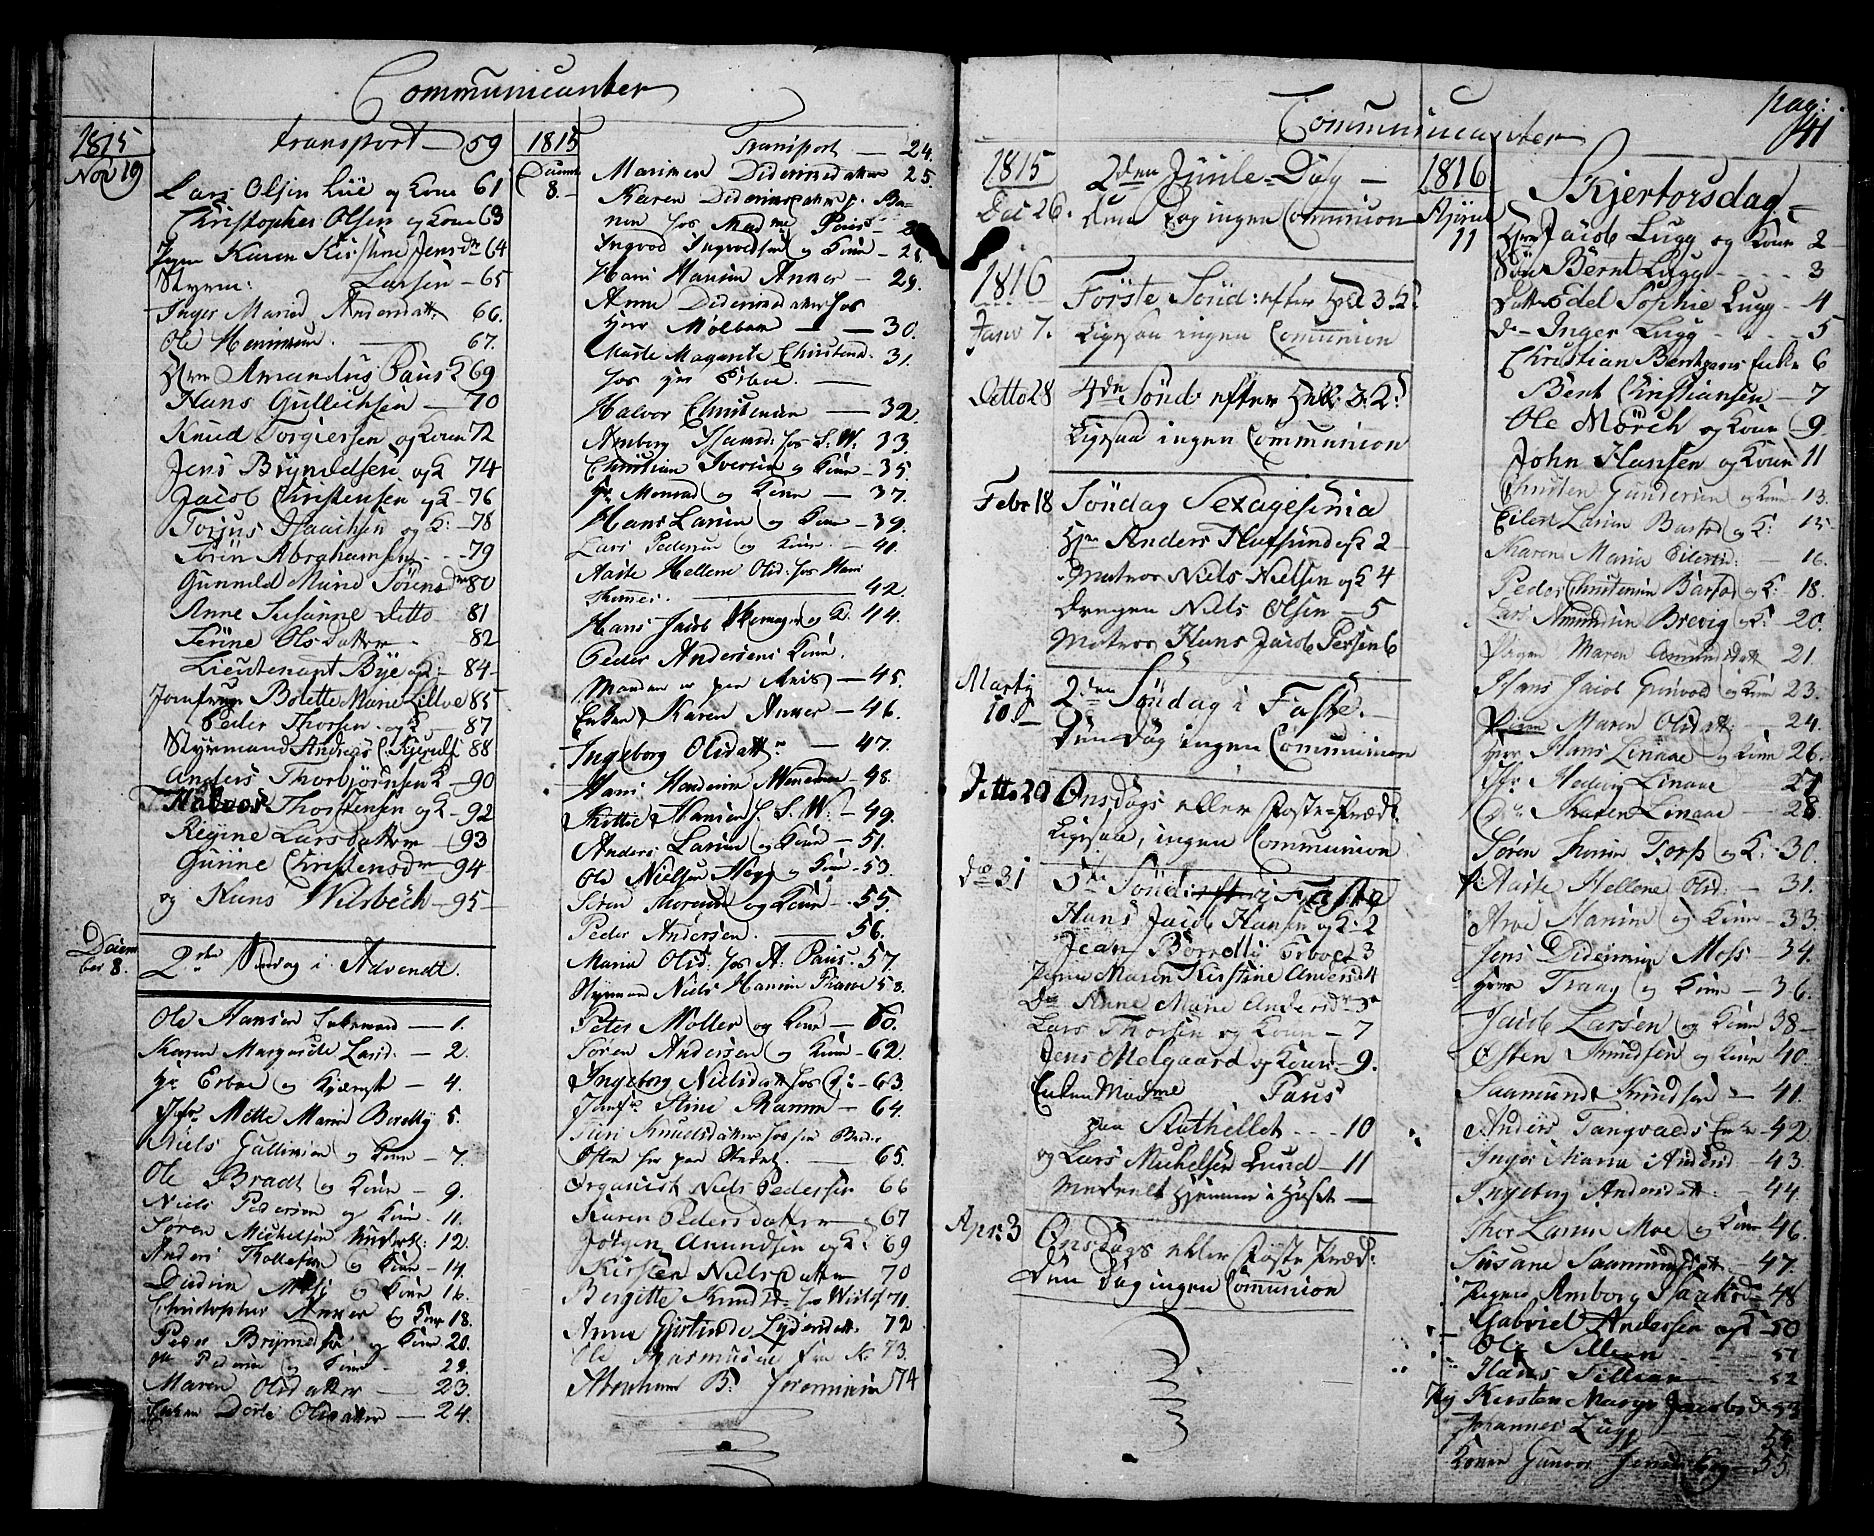 Communicanter
1815
Nov 19
transport — 59
Lars Olsen Lie og Kone 61
Christopher Olsen og Kone 63
Pigen Karen Kirstine Jensdr 64
Styrm: Larsen — 65
Inger Maria Andersdatt: 66.
Ole Henriksen — 67.
Hrr Amandus Paus 69
Hans Gullichsen — 70
Knud Torgiersen og Kone 72
Jens Brynildsen og K 74
Jacob Christensen og K — 76
Torjus Isaachsen og K: — 78
Sørin Abrahamsen — 79
Gunnild Marie Sørensdr 80
Anne Susanne Ditto — 81
Serine Olsdatter — 82
Lieutenant Bye og K — 84
Jomfrue Bolette Marie Lillve 85
Peder Thorsen og K — 87
Styrmand Anders 88
Anders Thorbjørnsen K — 90
Halvor Thorstensen og K — 92
Regine Larsdatter — 93
Gurine Christensdr — 94
og Hans Wilsbech — 95
Decem
ber 8.
2den Søndag i Advendt.
Ole Hansen Enkemand — 1.
Karen Margarete Larsd. — 2.
Hr Erboe og Kjæreste — 4.
Jfr. Mette Marie Borelly 5.
Niels Gullicsen og Kone — 7.
Ole Bradt og Kone — 9.
Niels Pedersen og Kone — 11.
Søren Michelsen — 12.
Anders Thollefsen og Kone — 14.
Didrik Moss og Kone 16.
Christopher Anner og Kone 18.
Peder Brynildsen og Kone 20.
Ole Pedersen og Kone — 22.
Maren Olsdatter — 23.
Enken Dorte Olsdatter — 24.
1815
Decembr
8.
Transport — 24.
Maren Didericsdatter 25.
Karen Didericsdatter p. Ba-
nen hos Madme Paus
Ingvod Ingvodsen og Kone — 28.
Hans Hansen Anner — 29.
Anne Didericsdatter hos
Herr Mølbak — 30.
Maste Magarete Christensd. 31.
hos Hr Erboe.
Halvor Christensen — 32.
Amborg Isaacsd. hos S. W. 33.
Christian Iversen og Kone — 35.
Hr. Monrad og Kone — 37.
Hans Larsen og Kone — 39.
Lars Pedersen og Kone — 41.
Aaste Hellene Olsd: hos Hans
— 42.
Hans Jacob og K. 44.
Peder Andersens Kone
Manden er paa Reis — 45.
Enken Karen Anner — 46.
Ingeborg Olsdattr — 47.
Hans Henderich — 48.
Mette Hansen h. S. W: — 49.
Anders Larsen og Kone — 51.
Ole Nielsen og Kone — 53.
Søren og Kone — 55.
Peder Andersen — 56.
Maria Olsd: hos A: Paus. 57.
Styrmand Niels Hansen 58.
Peter Møller og Kone — 60.
Søren Andersen og Kone — 62.
Ingeborg Nielsdatt hos — 63.
Jomfr Stine Ramm — 64.
Siri Knudsdatter hos
— 65.
Organist Niels Pedersen 66
Karen Pedersdatter 67
Jørgen Amundsen og K 69
Kirsten Nielsdatter 70
Bergitte Knudsd. 71.
Anne Gjertrude Lydersdatt 72.
Ole Rasmusen 73.
Abraham B: Jeremiesen 74
Communicanter
pag:
41
1815
Dec 26.
2den Juule-Dag —
denne Dag ingen Communion
1816
Janv 7.
Første Sønd: efter Hel 3 K:
Ligesaa ingen Communion
Ditto 28
4de Sønd: efter Hell: 3: K:
Ligesaa ingen Communion
Febr 18
Søndag Sexagesima
Hrr Anders Hafsund og K 2
Matros Niels Nielsen og K 4
Drengen Niels Olsen — 5
Matros Hans Jacob Persen 6
Martij
10 —
2den Søndag i Faste.
Den Dag ingen Communion
Ditto 20
Onsdags eller Faste-Præd:
Ligesaa, ingen Communion
do 31
5te Sønd: i Faste
Hans Jacob Hansen og K: 2
Jean Borrelly Erboe 3
Pigen Maren Kirstine Andersd 4
Do Anne Marie Andersdr 5
Lars Thorsen og Kone — 7
Jens Melgaard og Kone — 9.
Enken Madme Paus
paa Ruthellet — 10
og Lars Michelsen Lund — 11
Meddeelt Hjemme i Huset —
Apr: 3
Onsdags eller Faste Præd:
Den Dag ingen Communion
1816
Apriil
11
Skjertorsdag
Hrr Jacob Lugg og Kone 2
Søn Bernt Lugg — 3
Datter Edel Sophie Lugg — 4
do — Inger Lugg — 5
Christian Bentzens Enke 6
Bent Christiansen — 7
Ole Mörch og Kone 9
John Hansen og Kone 11
Christen Gundersen og Kone 13.
Eilert Larsen Barfod og K: 15.
Maren Maria Eilertsd: — 16.
Peder Christensen Barfod og K: 18.
Lars Amundsen Brevig og K: 20.
Pigen Maren Amundsdatt 21.
Hans Jacob og Kone 23.
Pigen Maren Olsdatt: — 24.
Herr Hans Linaae og Kone 26.
Jfr: Hedvig Linaae 27
Do Karen Linaae — 28.
Søren Torp og K: — 30.
P. Aaste Hellene Olsd: — 31.
Arve Hansen og Kone — 33.
Jens Didericsen Moss — 34.
Herr Traag og Kone — 36.
Jacob Larsen og Kone 38 —
Østen Knudsen og Kone 40.
Saamund Knudsen — 41.
Anders Tangvalds Enke — 42
Inger Maria Andersd — 43.
Ingeborg Andersdatt: — 44.
Thor Larsen Moe og Kone 46.
Susane Saamundsdatt — 47.
Pigen Amborg Isaksd — 48
Gabriel Andersen og K 50
Ole Tillesen — 51
Hans Tillesen — 52
Pig Kirsten Margr Jacobsd 53
Johannes Lugg — 54
Konen Gunvor — 55